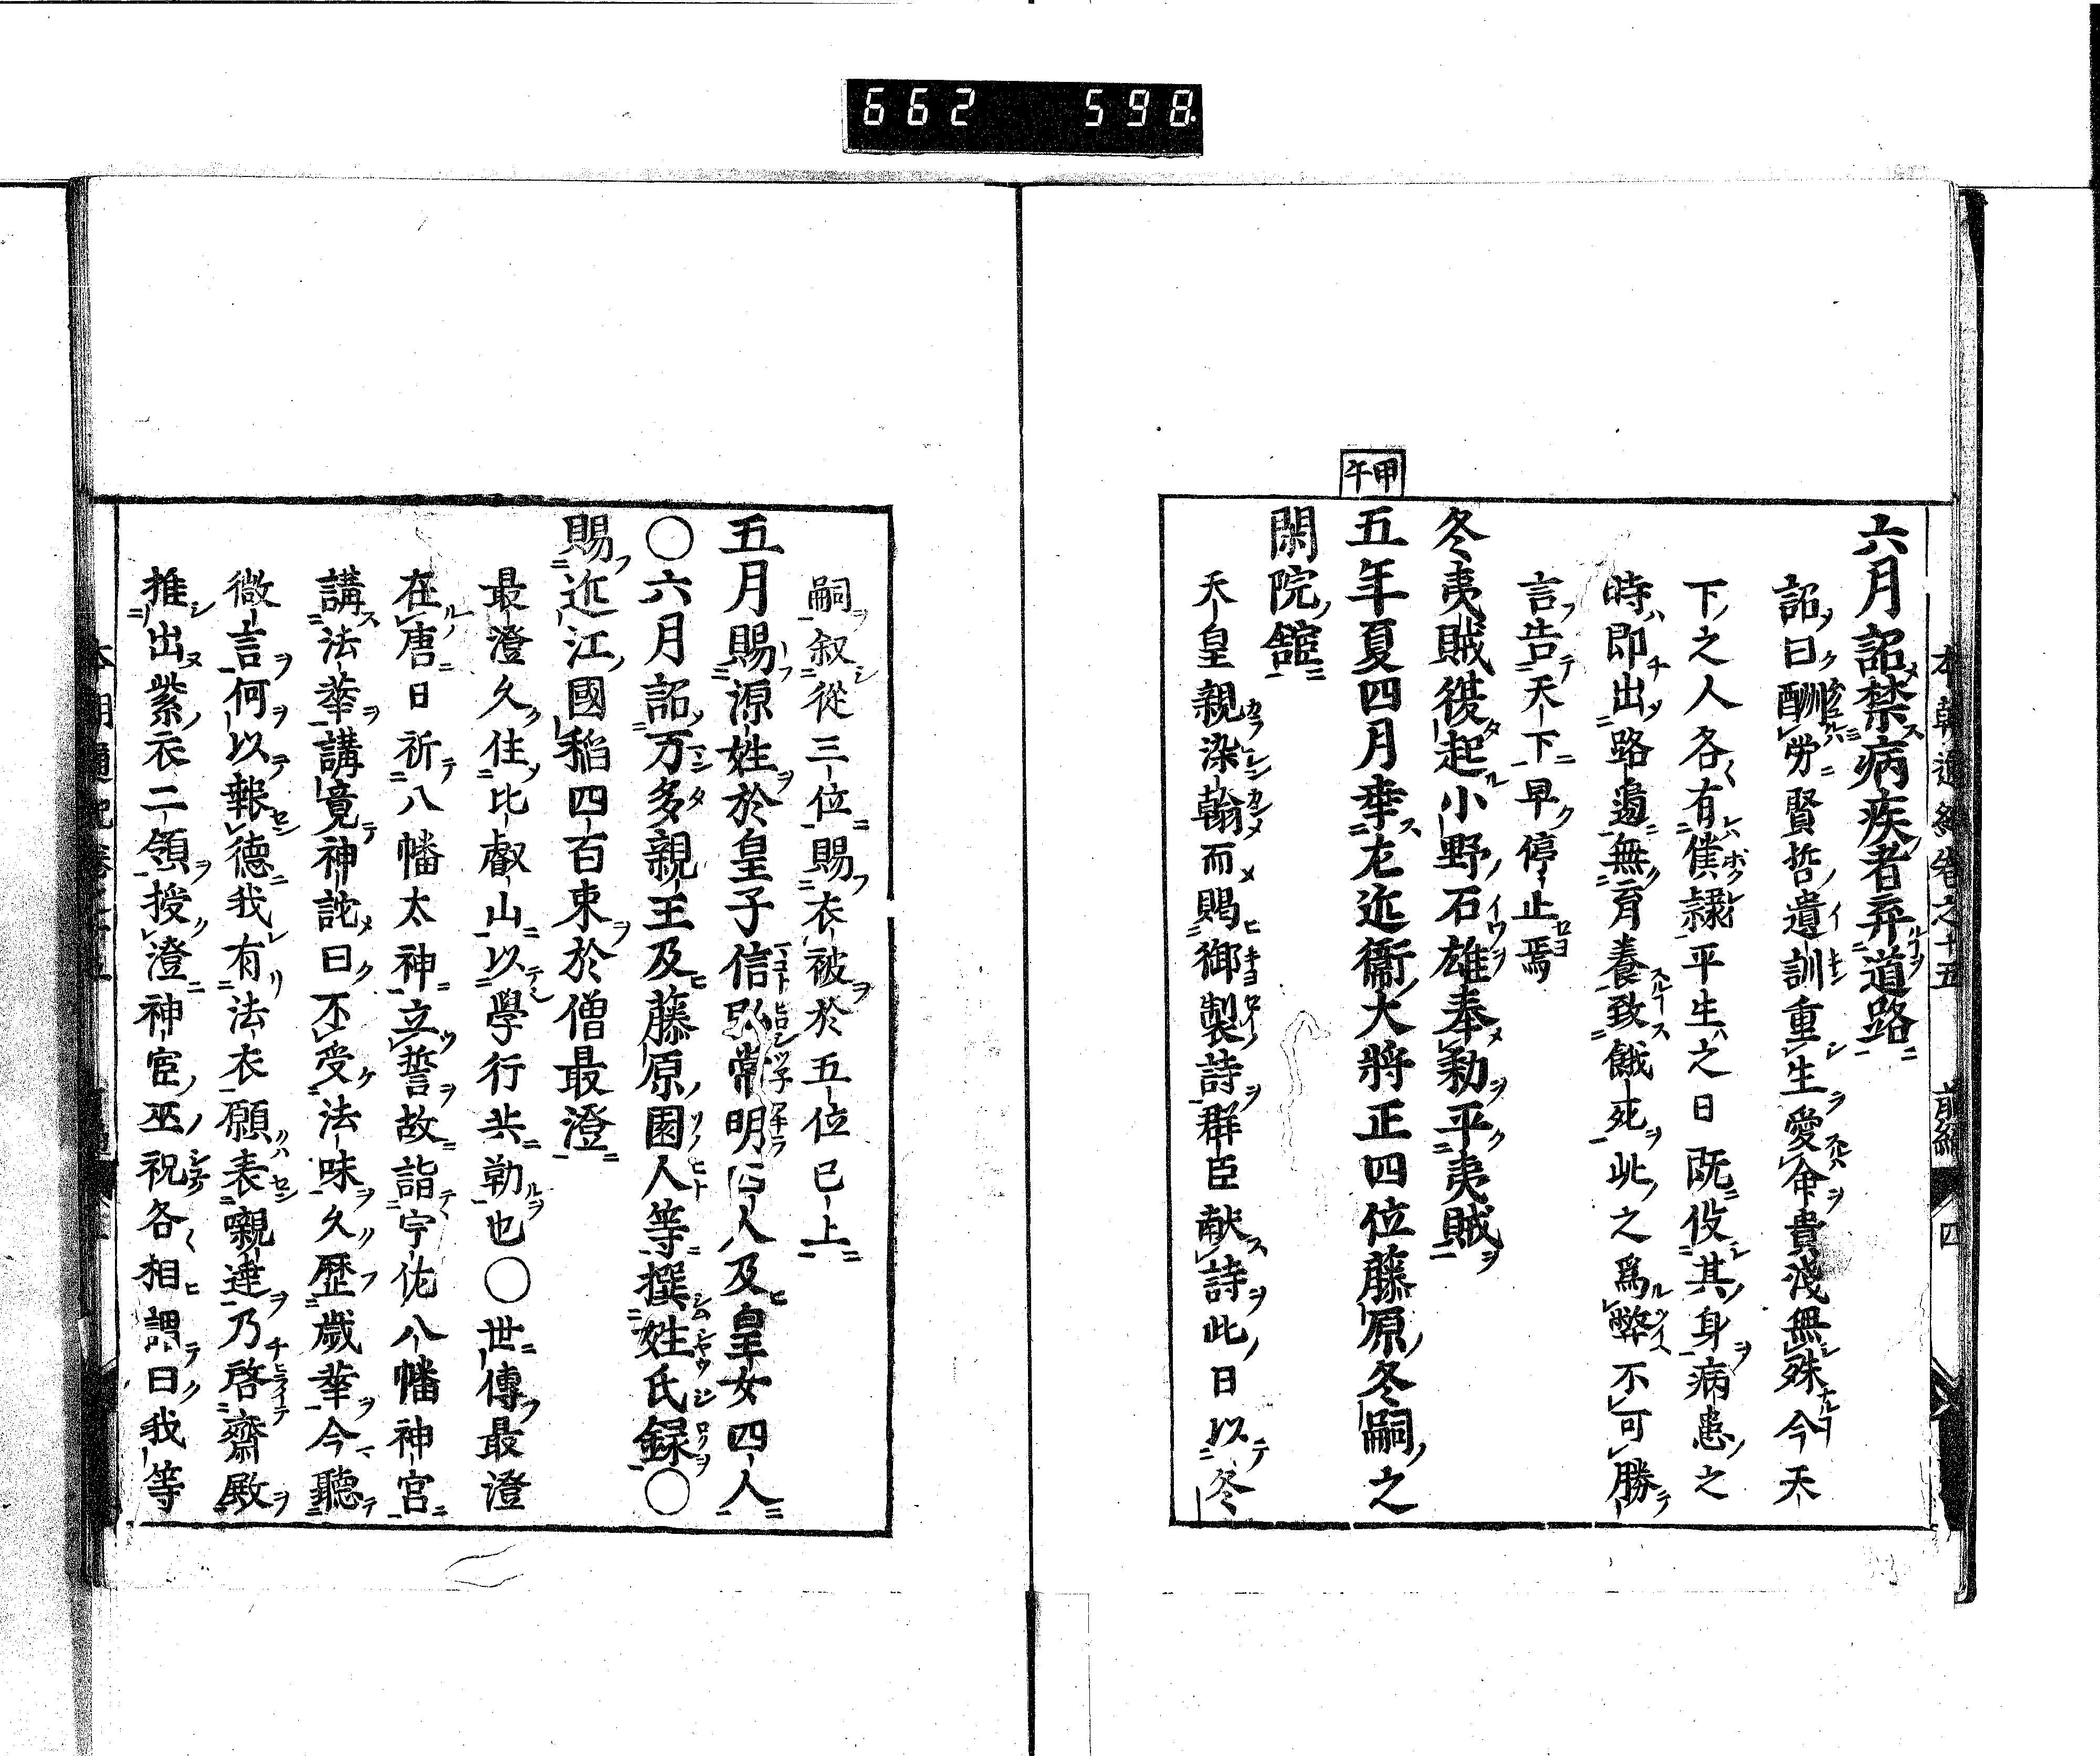 662 598
本朝通紀卷之十五 前編 四
六月詔禁病疾者弃道路
詔曰酬労賢哲遺訓重生愛命貴淺無殊今天
下之人各有僕隷平生之日既役其身病患之
時即出路邉無育養致餓死此之爲弊不可勝
言告天下早停止焉
冬夷賊復起小野石雄奉勅平夷賊
甲午
五年夏四月幸左近衞大将正四位藤原冬嗣之
閑院舘
天皇親染翰而賜御製詩群臣献詩此日以冬
嗣叙從三位賜衣被於五位已上
五月賜源姓於皇子信弘常明四人及皇女四人
〇六月詔万多親王及藤原園人等撰姓氏録〇
賜近江國稻四百束於僧最澄
最澄久住比叡山以學行共勤也〇世傳最澄
在唐日祈八幡太神立誓故詣宇佐八幡神宮
講法華講竟神託曰不受法味久歴歳華今聽
微言何以報德我有法衣願表嚫達乃啓齋殿
推出紫衣二領授澄神宦巫祝各相謂曰我等